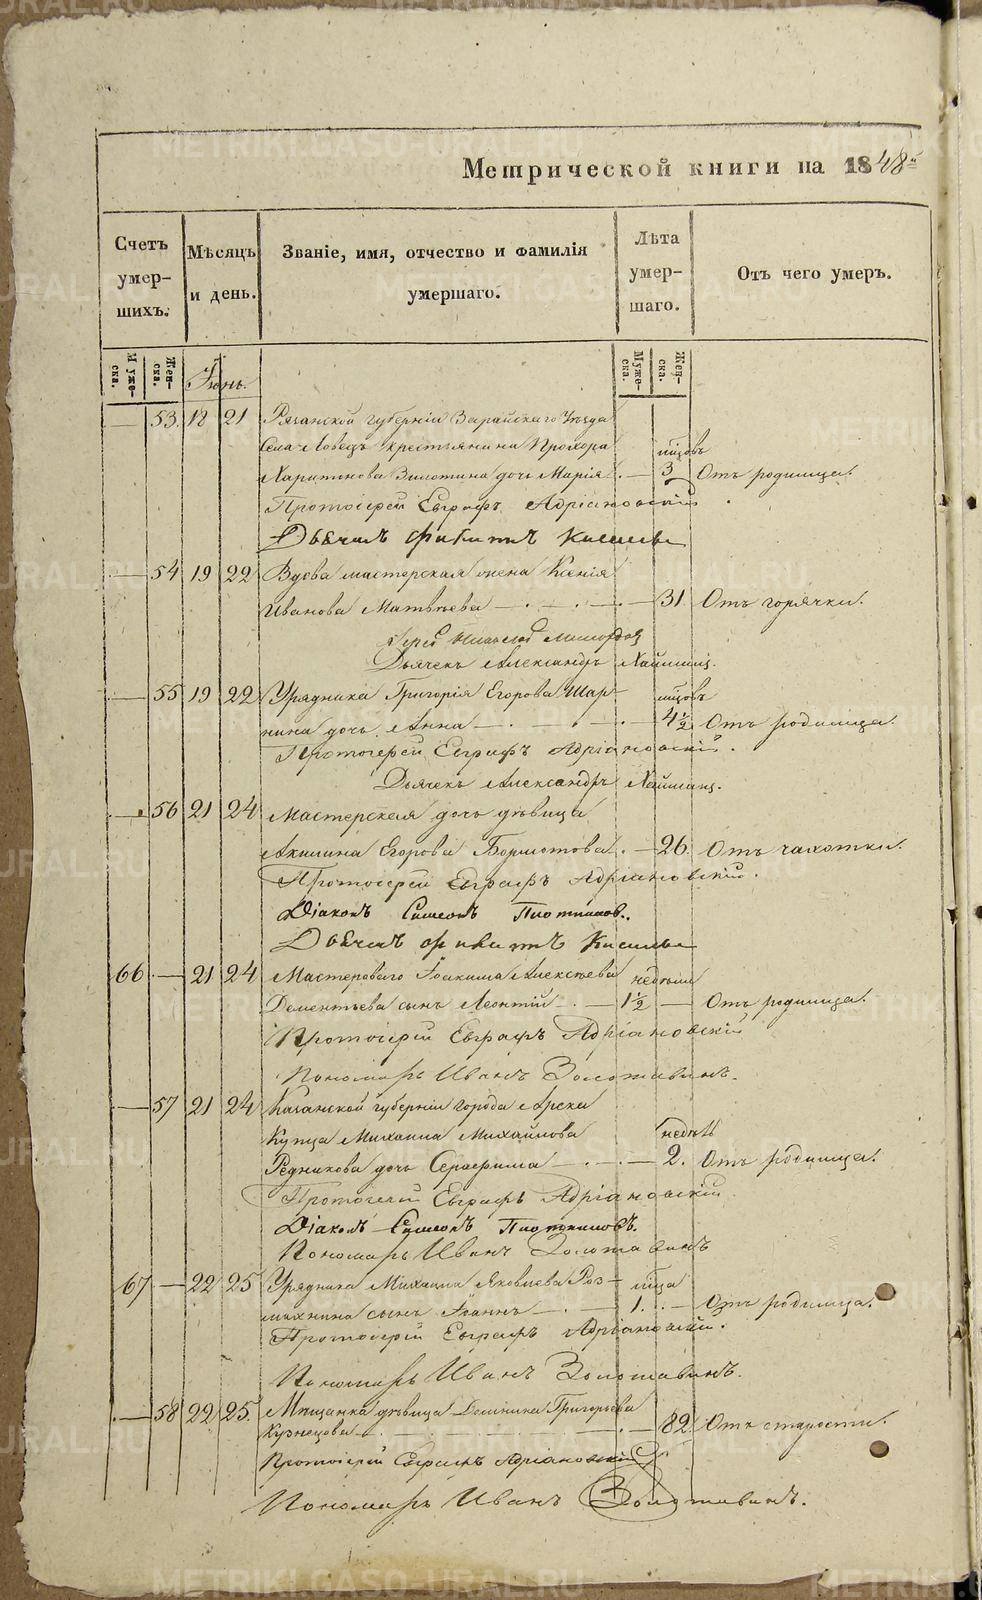 Метрической книги на 1848й
Счетъ умерших. Мѣсяцъ и день. Званіе, имя, отчество и фамилія умершаго. Лѣта умершаго. Отъ чего умеръ.
Мужеска. Женска. Мужеска. Женска.
Іюнь.
— 53. 18 21 Рязанской губерніи Зарайскаго Уѣзда
Села Ловецъ крестьянина Прохора мѣсяцовъ
Харитонова дочь Марія. — 3 Отъ родимца.
Протоіерей Евграфъ Адріановскій.
— 54 19 22 Вдова мастерская жена Ксенія
Иванова Матвѣева — 31. Отъ горячки.
Іерей
Дьячекъ Александръ
— 55 19 22 Урядника Григорія Егорова Шар- мѣсяцовъ
нина дочь Анна — 4½ Отъ родимца.
Протоіерей Евграфъ Адріановскій.
Дьячекъ Александръ
— 56 21 24 Мастерская дочь дѣвица
Акилина Егорова — 26. Отъ чахотки.
Протоіерей Евграфъ Адріановскій.
Діаконъ Симеонъ Плотниковъ.
66 — 21 24 Мастероваго Іоакима Алексѣева недѣли
Дементьева сынъ Леонтій — 1½ — Отъ родимца.
Протоіерей Евграфъ Адріановскій
Пономарь Иванъ Золотавинъ.
— 57 21 24 Казанской губерніи города Арска
Купца Михаила Михайлова недѣль
Редникова дочь Серафима — 2. Отъ родимца.
Протоіерей Евграфъ Адріановскій
Діаконъ Симеонъ Плотниковъ.
Пономарь Иванъ Золотавинъ
67 — 22 25 Урядника Михаила Яковлева Роз- мѣсяца
сынъ Іоаннъ — 1. — Отъ родимца.
Протоіерей Евграфъ Адріановскій.
Пономарь Иванъ Золотавинъ.
— 58 22 25. Мѣщанка дѣвица Домника Григорьева
Кузнецова — 82. Отъ старости.
Протоіерей Евграфъ Адріановскій
Пономарь Иванъ Золотавинъ.
METRIKI.GASO-URAL.RU